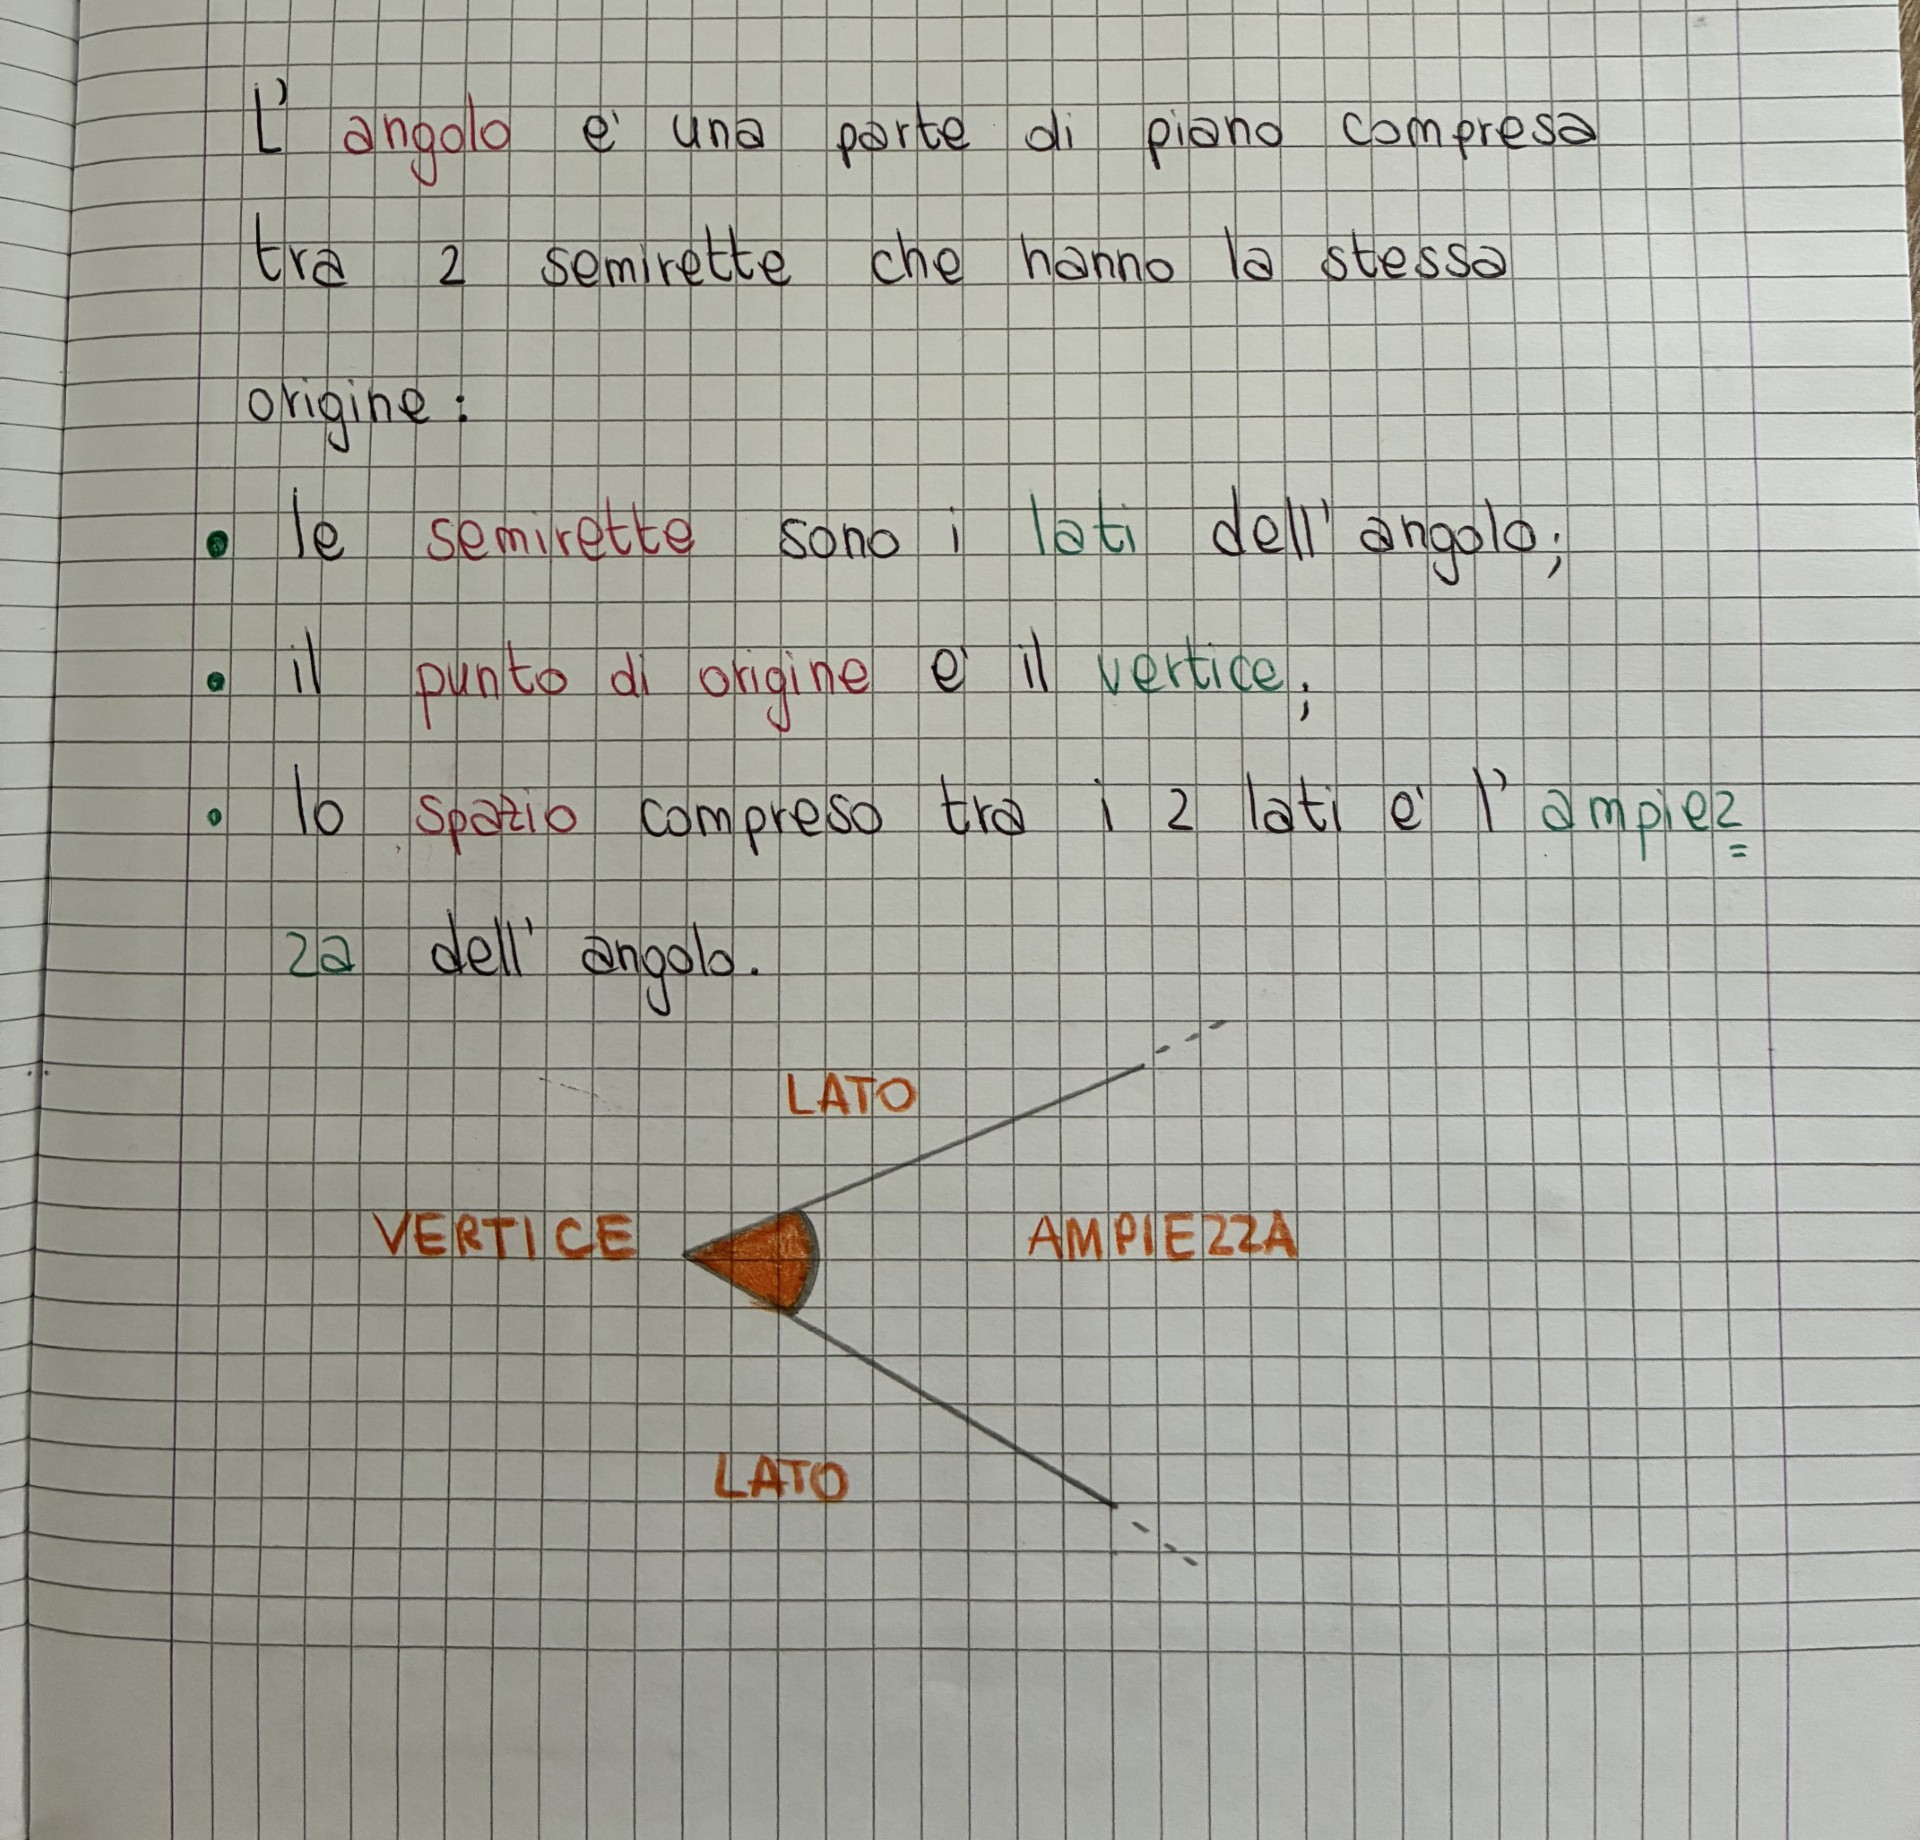 L'angolo e' una parte di piano compresa
tra 2 semirette che hanno la stessa
origine:
• le semirette sono i lati dell'angolo;
• il punto di origine e' il vertice;
• lo spazio compreso tra i 2 lati e' l'ampiez=
za dell'angolo.
LATO
VERTICE
AMPIEZZA
LATO